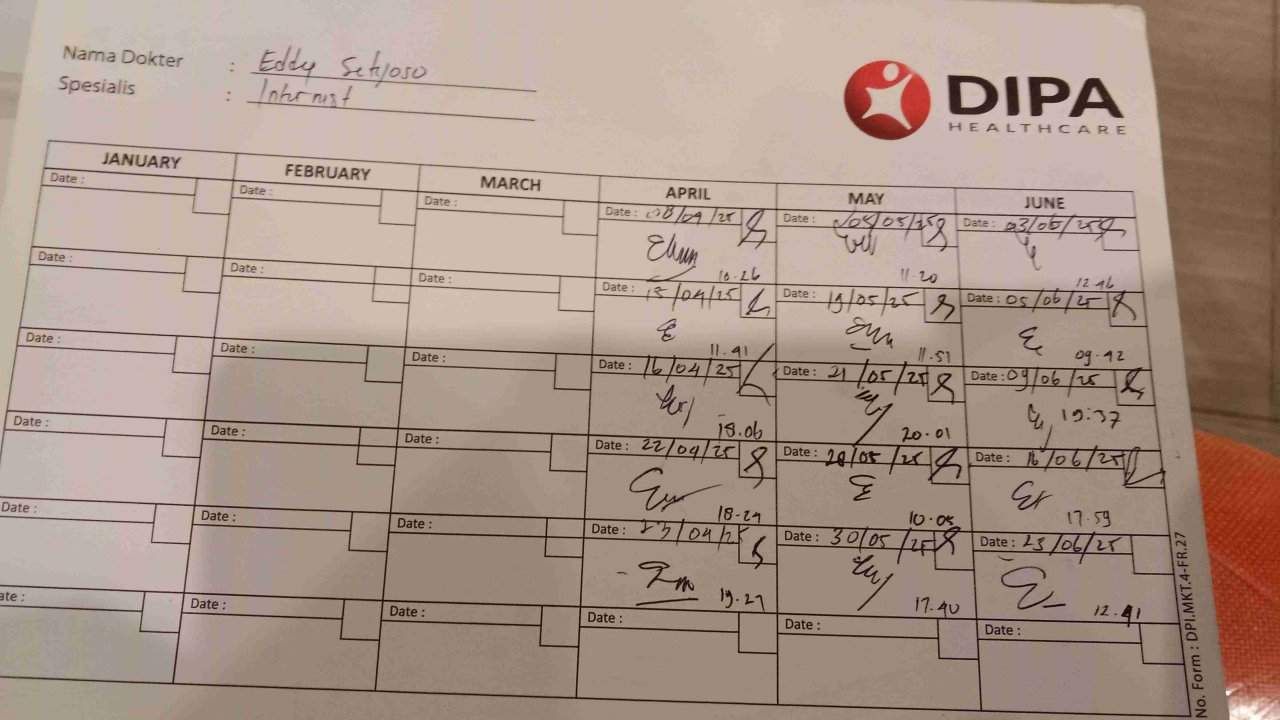 Nama Dokter : Eddy Setyoso
Spesialis : Internist
DIPA
HEALTHCARE
JANUARY FEBRUARY MARCH APRIL MAY JUNE
Date : Date : Date : Date : 08/04/25 Date : 05/05/25 Date : 03/06/25
10.26 11.20 12.46
Date : Date : Date : Date : 15/04/25 Date : 19/05/25 Date : 05/06/25
11.41 11.51 09.42
Date : Date : Date : Date : 16/04/25 Date : 21/05/25 Date : 09/06/25
18.06 20.01 19:37
Date : Date : Date : Date : 22/04/25 Date : 28/05/25 Date : 16/06/25
18.29 10.05 17.59
Date : Date : Date : Date : 23/04/25 Date : 30/05/25 Date : 23/06/25
19.27 17.40 12.41
ate : Date : Date : Date : Date : Date :
No. Form : DPI.MKT.4-FR.27